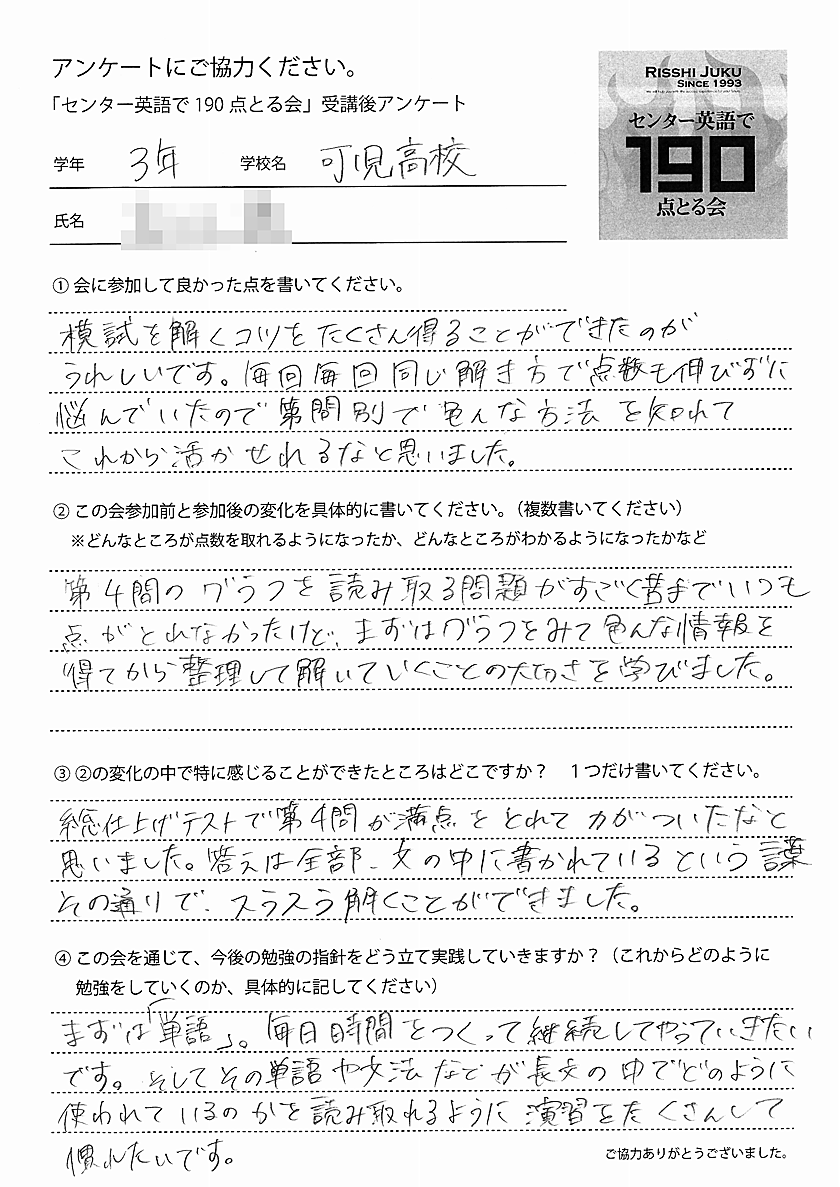 アンケートにご協力ください。
「センター英語で190点とる会」受講後アンケート
RISSHI JUKU
SINCE 1993
センター英語で
190
点とる会
学年 3年 学校名 可児高校
氏名
① 会に参加して良かった点を書いてください。
模試を解くコツをたくさん得ることができたのが
うれしいです。毎回毎回同じ解き方で点数も伸びずに
悩んでいたので第問別で色んな方法を知れて
これから活かせれるなと思いました。
② この会参加前と参加後の変化を具体的に書いてください。（複数書いてください）
※どんなところが点数を取れるようになったか、どんなところがわかるようになったかなど
第4問のグラフを読み取る問題がすごく苦手でいつも
点がとれなかったけど、まずはグラフをみて色んな情報を
得てから整理して解いていくことの大切さを学びました。
③ ②の変化の中で特に感じることができたところはどこですか？ 1つだけ書いてください。
総仕上げテストで第4問が満点をとれて力がついたなと
思いました。答えは全部、文の中に書かれているという言葉
その通りで、スラスラ解くことができました。
④ この会を通じて、今後の勉強の指針をどう立て実践していきますか？（これからどのように
勉強をしていくのか、具体的に記してください）
まずは「単語」。毎日時間をつくって継続してやっていきたい
です。そしてその単語や文法などが長文の中でどのように
使われているのかを読み取れるように演習をたくさんして
慣れたいです。
ご協力ありがとうございました。